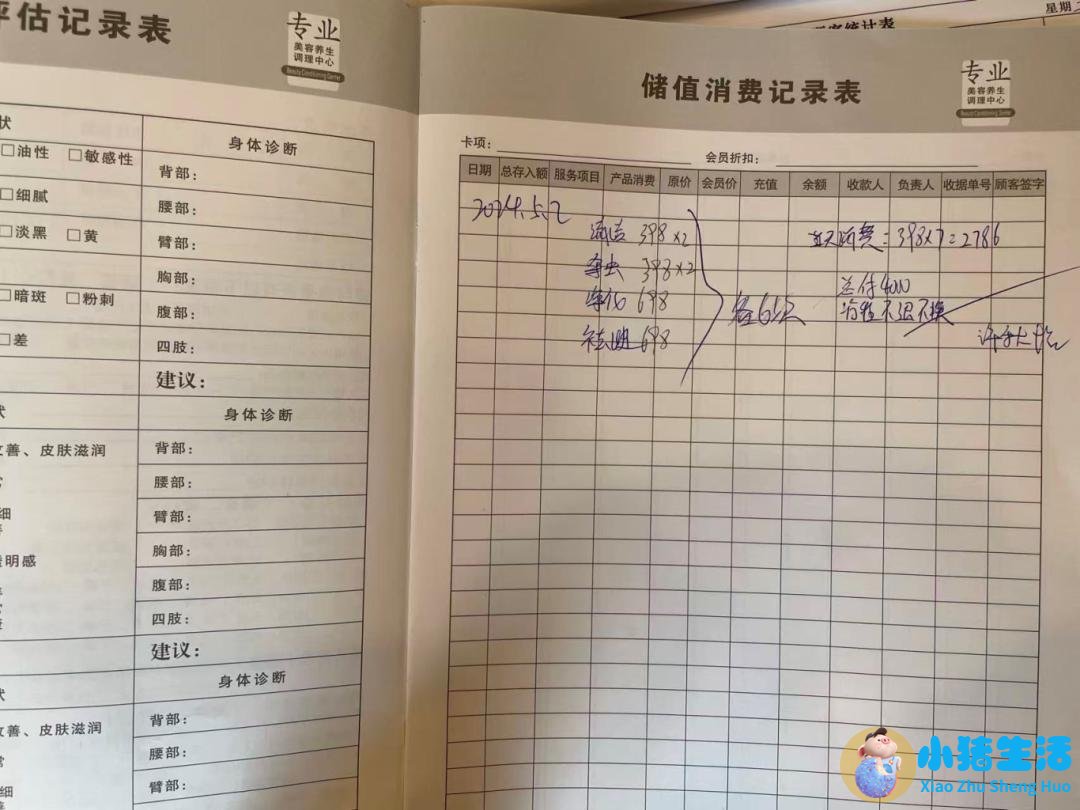 评估记录表
专业
美容养生
调理中心
Beauty Conditioning Center
状
身体诊断
□油性 □敏感性
背部：
□细腻
腰部：
□淡黑 □黄
臂部：
胸部：
□暗斑 □粉刺
腹部：
□差
四肢：
建议：
状
身体诊断
改善、皮肤滋润
背部：
腰部：
细
臂部：
胸部：
透明感
腹部：
四肢：
建议：
状
身体诊断
改善、皮肤滋润
背部：
常
腰部：
细
臂部：
星期
统计表
储值消费记录表
专业
美容养生
调理中心
Beauty Conditioning Center
卡项：
会员折扣：
日期 总存入额 服务项目 产品消费 原价 会员价 充值 余额 收款人 负责人 收据单号 顾客签字
2024.5.2
清洁 398×2
杀虫 398×2
净化 698
祛 698
各6次
消费：398×7=2786
总付400
不退不换
小猪生活
Xiao Zhu Sheng Huo